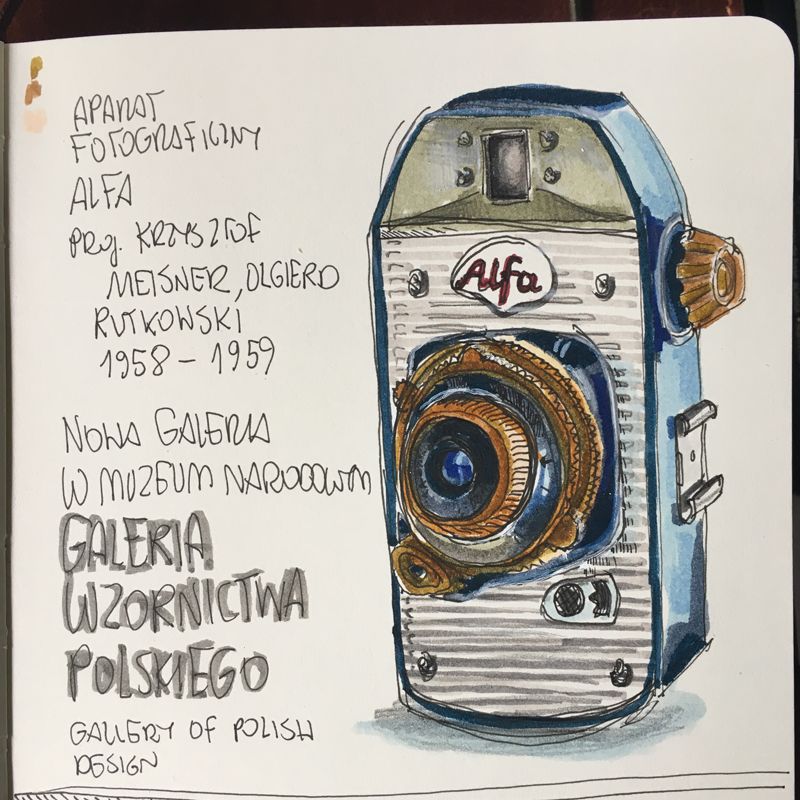 APARAT
FOTOGRAFICZNY
ALFA
PROJ. KRZYSZTOF
MEISNER, OLGIERD
RUTKOWSKI
1958 - 1959
NOWA GALERIA
W MUZEUM NARODOWYM
GALERIA
WZORNICTWA
POLSKIEGO
GALLERY OF POLISH
DESIGN
Alfa